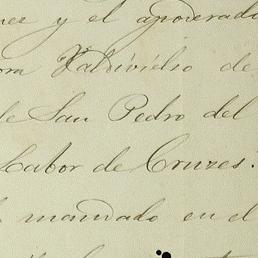 y el apoderado
Valdivielso de
de San Pedro del
Labor de Cruzes.
mandado en el